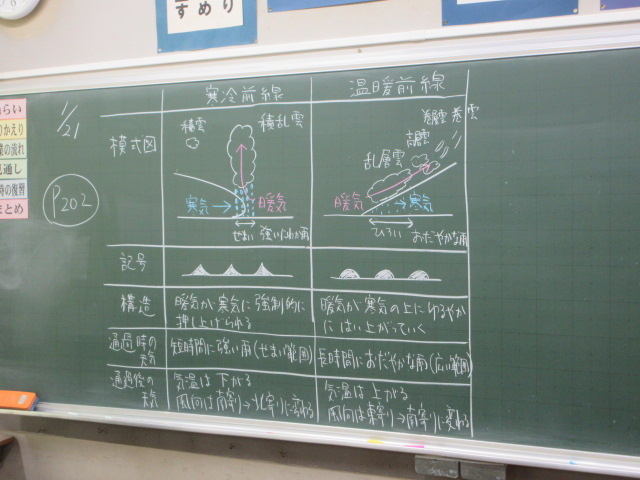 すめり
1/21
P202
らい
りかえり
業の流れ
見通し
時の復習
まとめ
寒冷前線
温暖前線
模式図
積雲
積乱雲
寒気
暖気
せまい 強いにわか雨
巻層雲 巻雲
高層雲
乱層雲
暖気
寒気
ひろい おだやかな雨
記号
構造
暖気が寒気に強制的に
押し上げられる
暖気が寒気の上にゆるやか
にはい上がっていく
通過時の
天気
短時間に強い雨(せまい範囲)
長時間におだやかな雨(広い範囲)
通過後の
天気
気温は下がる
風向は南寄り→北寄りに変わる
気温は上がる
風向は東寄り→南寄りに変わる